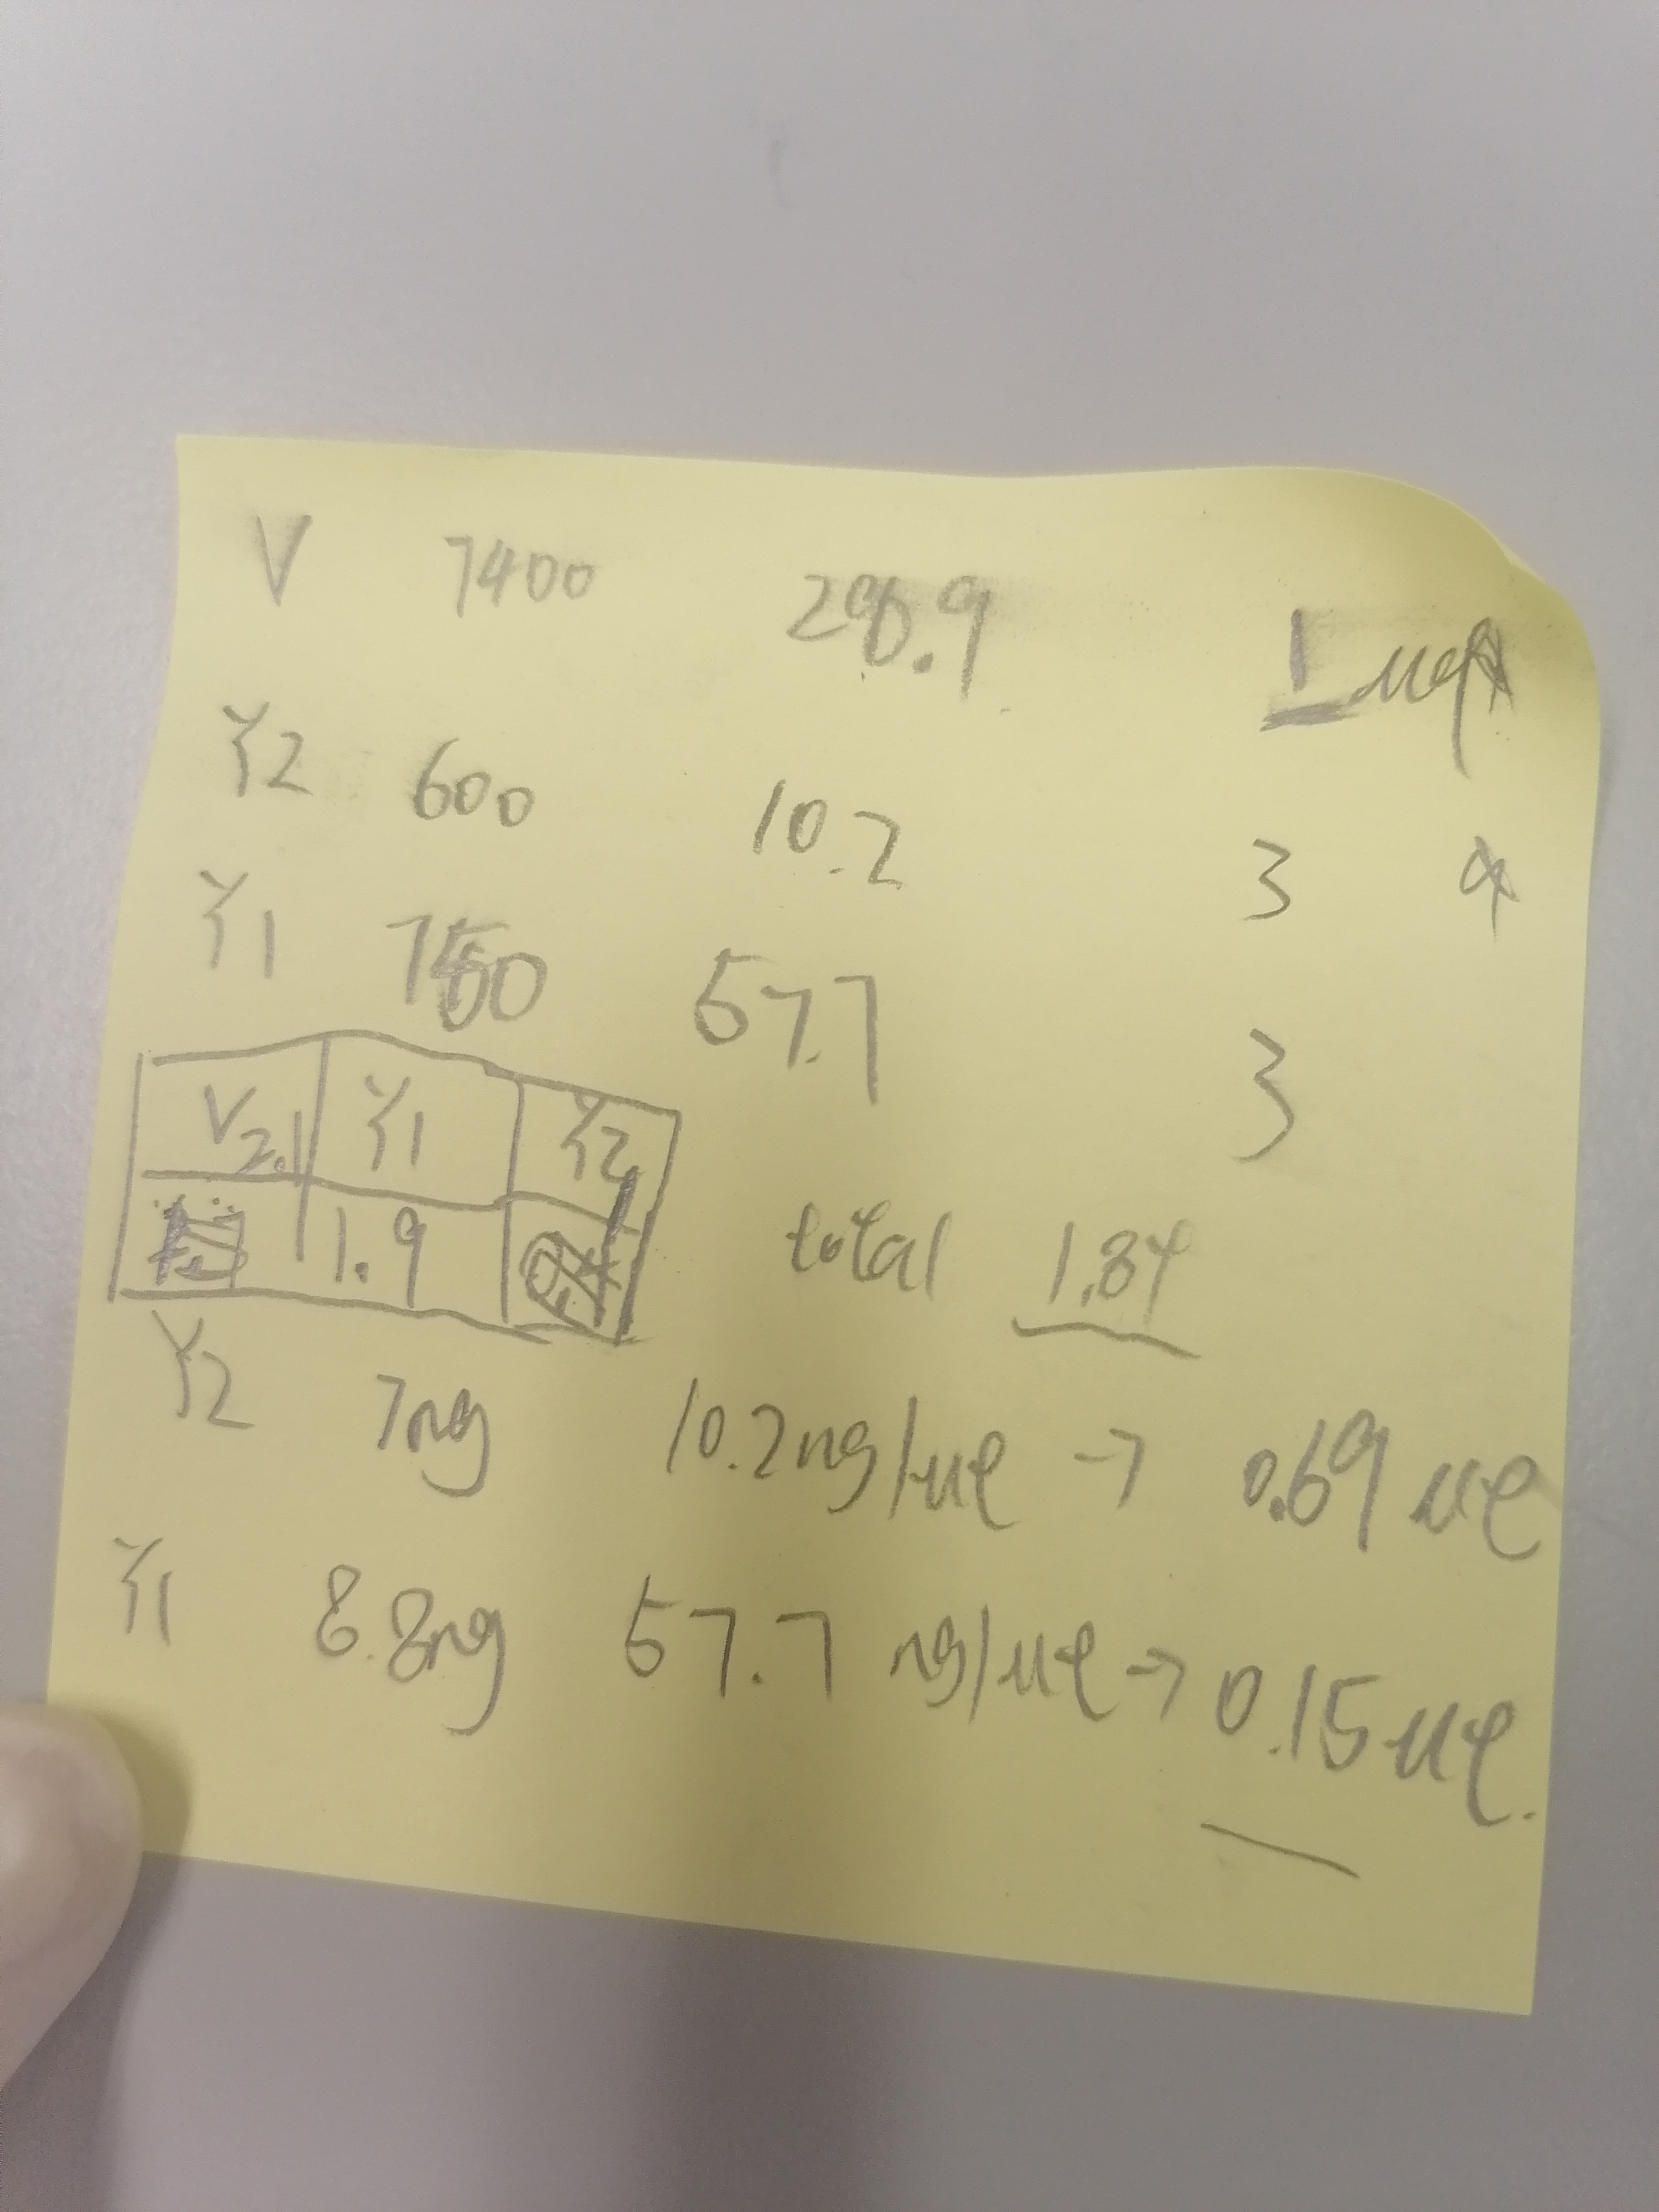 V 7400 28.9 1 μl
Y2 600 10.2 3
Y1 750 57.7 3
V 2.1 Y1 Y2
1.9
total 1.84
Y2 7ng 10.2ng/μl → 0.69 μl
Y1 8.8ng 57.7 ng/μl → 0.15 μl.